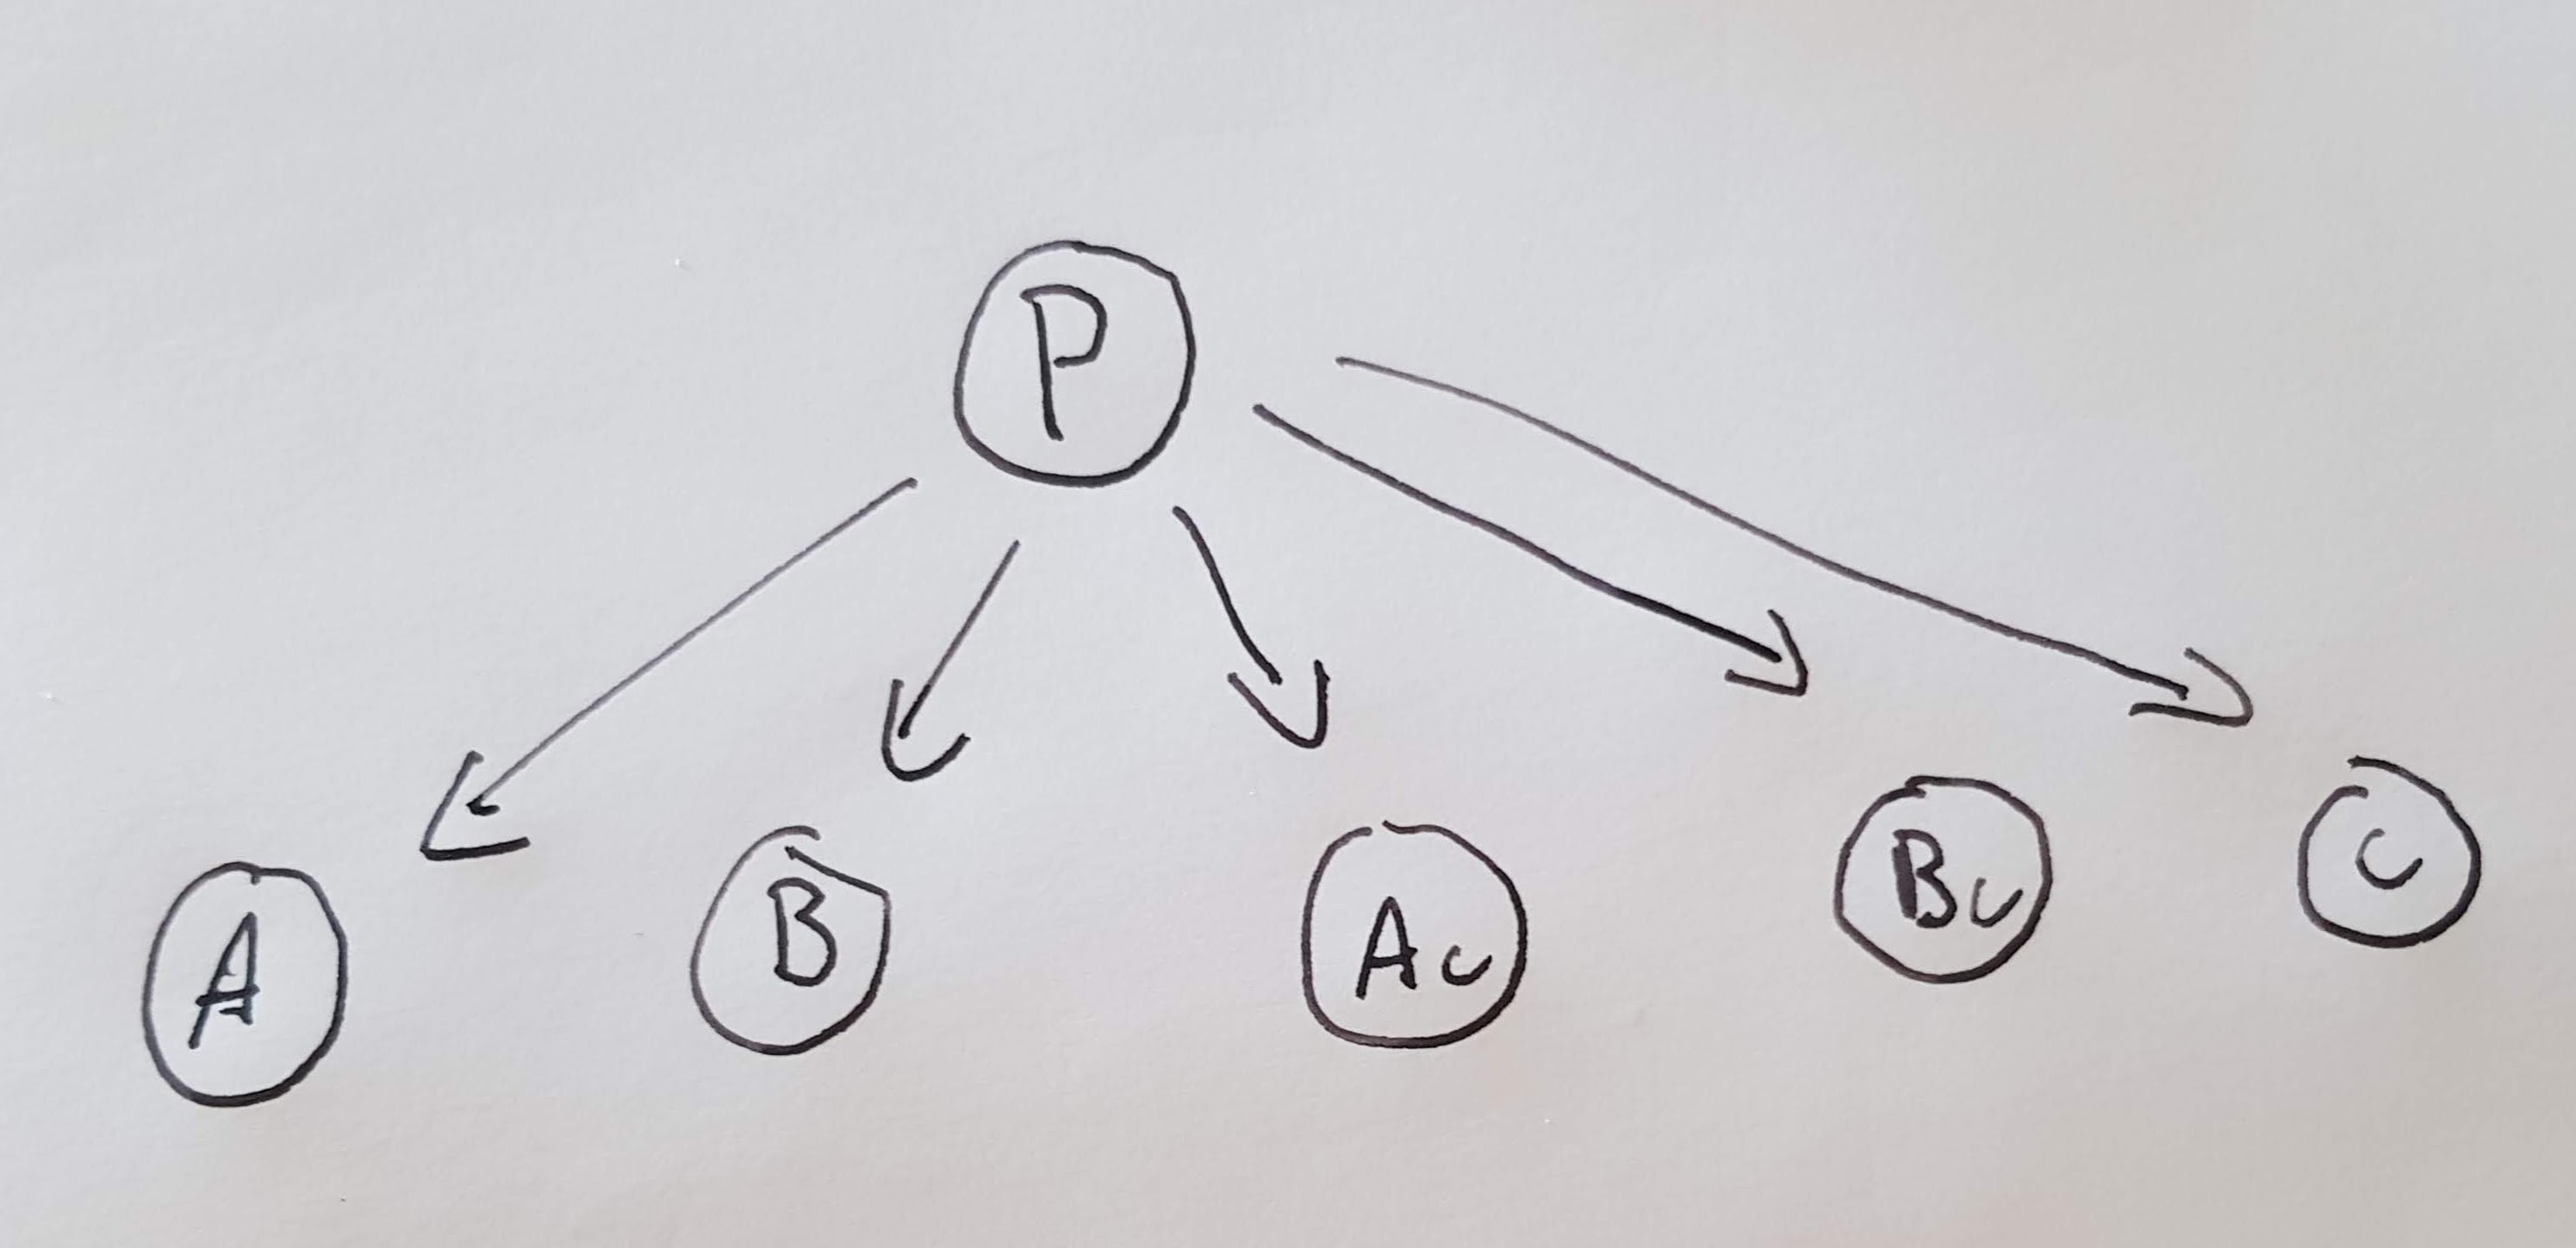 P
A
B
Ac
Bc
C